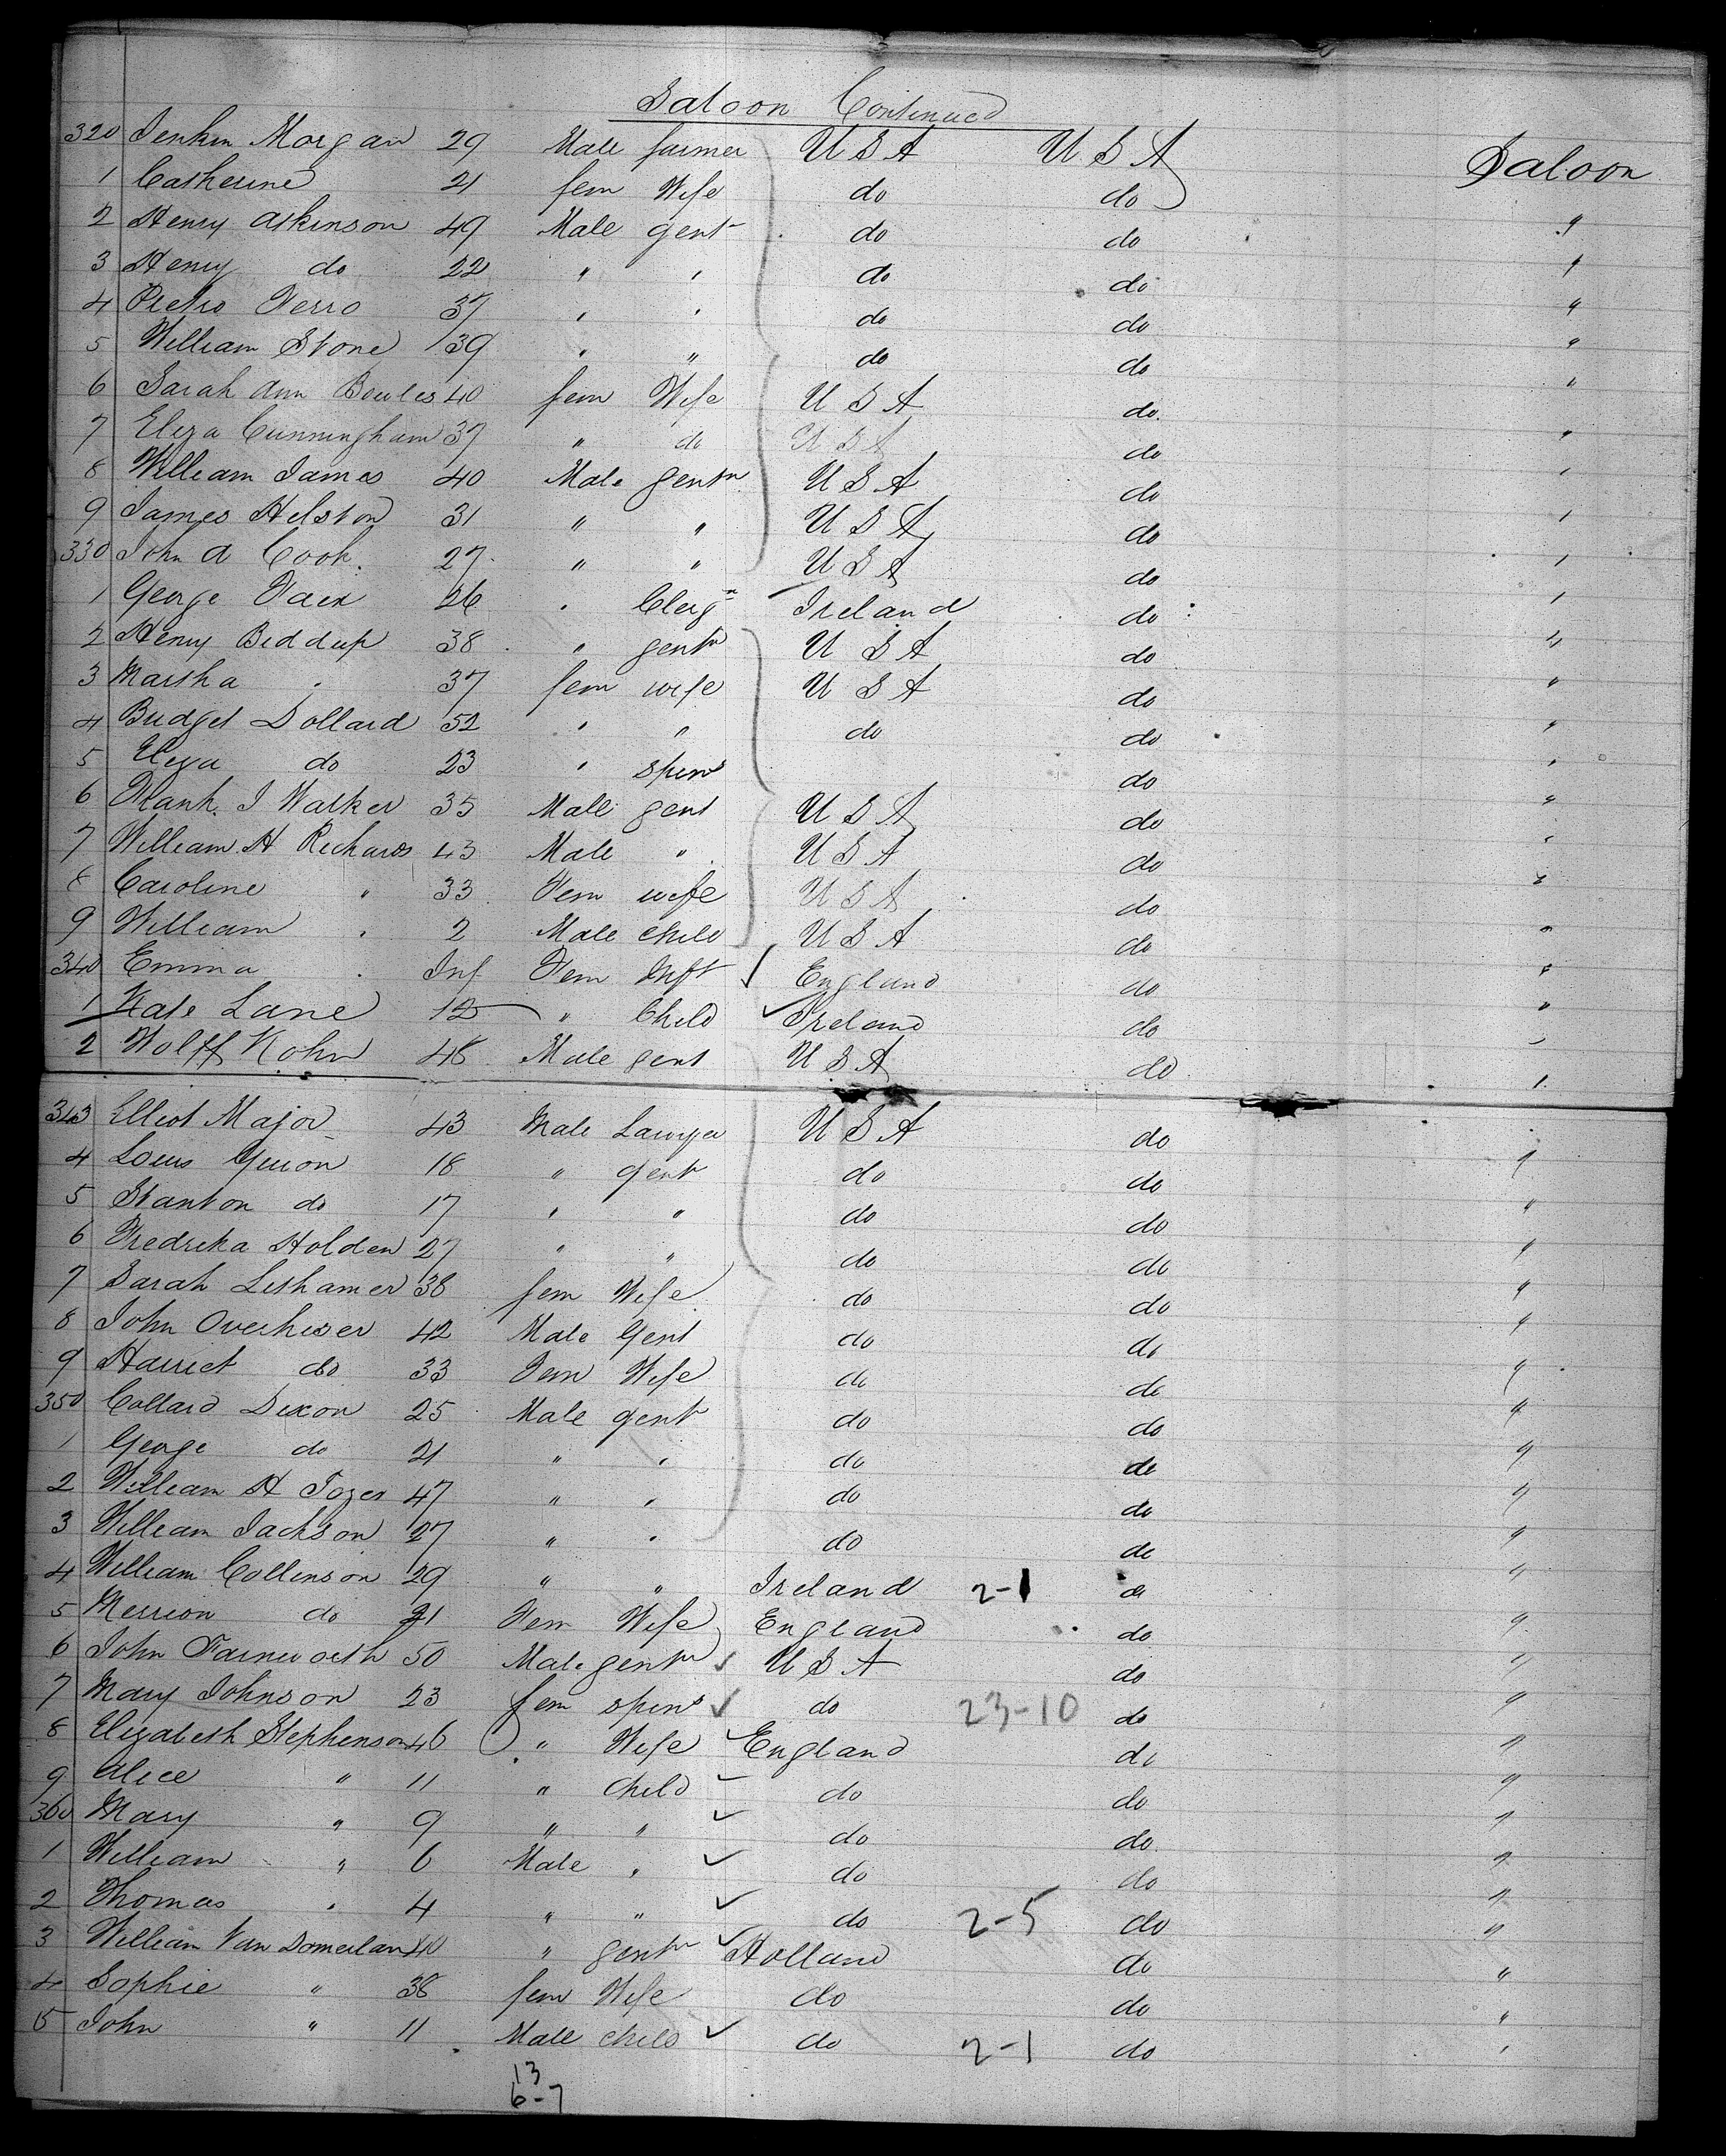 Saloon Continued
320 Jenkin Morgan 29 Male farmer U S A U S A Saloon
1 Catherine 21 fem Wife do do "
2 Henry Atkinson 49 Male gent do do "
3 Henry do 22 " " do do "
4 Pietro Ferro 37 " " do do "
5 William Stone 39 " " do do "
6 Sarah Ann Bowles 40 fem Wife U S A do "
7 Eliza Cunningham 37 " do U S A do "
8 William James 40 Male gentn U S A do "
9 James Helston 31 " " U S A do "
330 John A Cook 27 " " U S A do "
1 George 26 " Clergn Ireland do "
2 Henry Biddup 38 " gentn U S A do "
3 Martha " 37 fem wife U S A do "
4 Bridget Dollard 52 " " do do "
5 Eliza do 23 " spins do "
6 Frank J Walker 35 Male gent U S A do "
7 William H Richards 43 Male " U S A do "
8 Caroline " 33 Fem wife U S A do "
9 William " 2 Male child U S A do "
340 Emma " Inf Fem Inft England do "
1 Kate Lane 12 " Child Ireland do "
2 Wolff Kohn 48 Male gent U S A do "
343 Elliot Major 43 Male Lawyer U S A do "
4 Louis Guion 18 " gent do do "
5 Stanton do 17 " " do do "
6 Fredrika Holden 27 " " do do "
7 Sarah Lishamer 38 fem Wife do do "
8 John Overhiser 42 Male Gent do do "
9 Harriet do 33 Fem Wife do do "
350 Collard Dixon 25 Male gent do do "
1 George do 21 " " do do "
2 William H Tozer 47 " " do do "
3 William Jackson 27 " " do do "
4 William Collinson 29 " " Ireland 2-1 do "
5 Merrion do 21 Fem Wife England do "
6 John Farnworth 50 Male gentn U S A do "
7 Mary Johnson 23 fem spins do 23-10 do "
8 Elizabeth Stephenson 46 " Wife England do "
9 Alice " 11 " child do do "
360 Mary " 9 " " do do "
1 William " 6 Male " do do "
2 Thomas " 4 " " do 2-5 do "
3 William Van Someilan 40 " gentn Holland do "
4 Sophie " 38 fem Wife do do "
5 John " 11 Male child do 2-1 do "
13
6-7